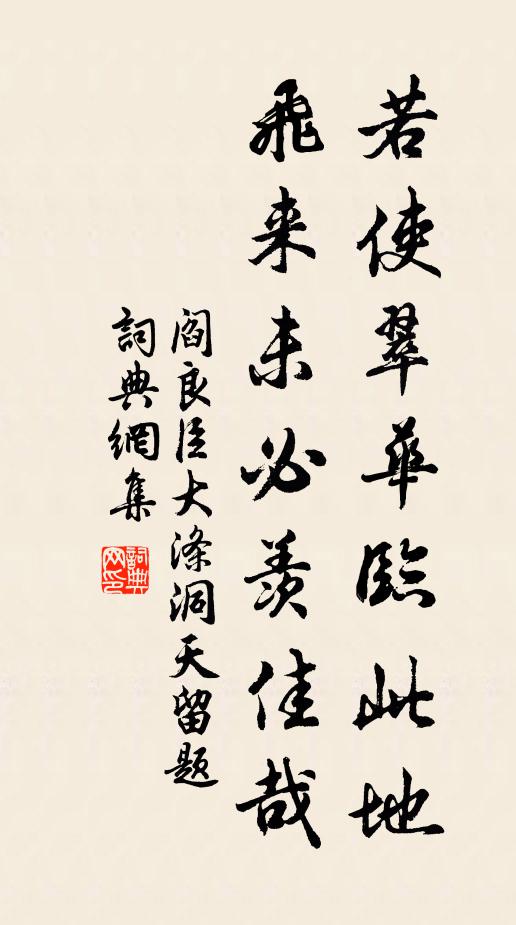 若使翠華臨此地
飛来未必羨佳哉
閻良臣大滌洞天留題
詞典網集
詞典网印